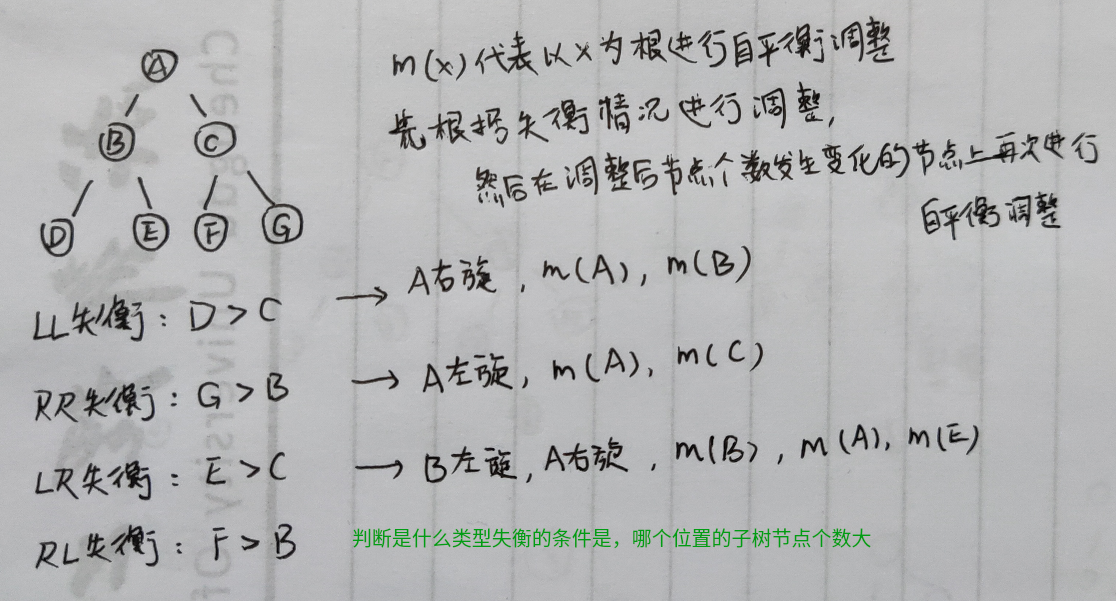 m(x)代表以x为根进行自平衡调整
先根据失衡情况进行调整,
然后在调整后节点个数发生变化的节点上再次进行
自平衡调整
A
B C
D E F G
LL失衡: D > C → A右旋, m(A), m(B)
RR失衡: G > B → A左旋, m(A), m(C)
LR失衡: E > C → B左旋, A右旋, m(B), m(A), m(E)
RL失衡: F > B
判断是什么类型失衡的条件是，哪个位置的子树节点个数大